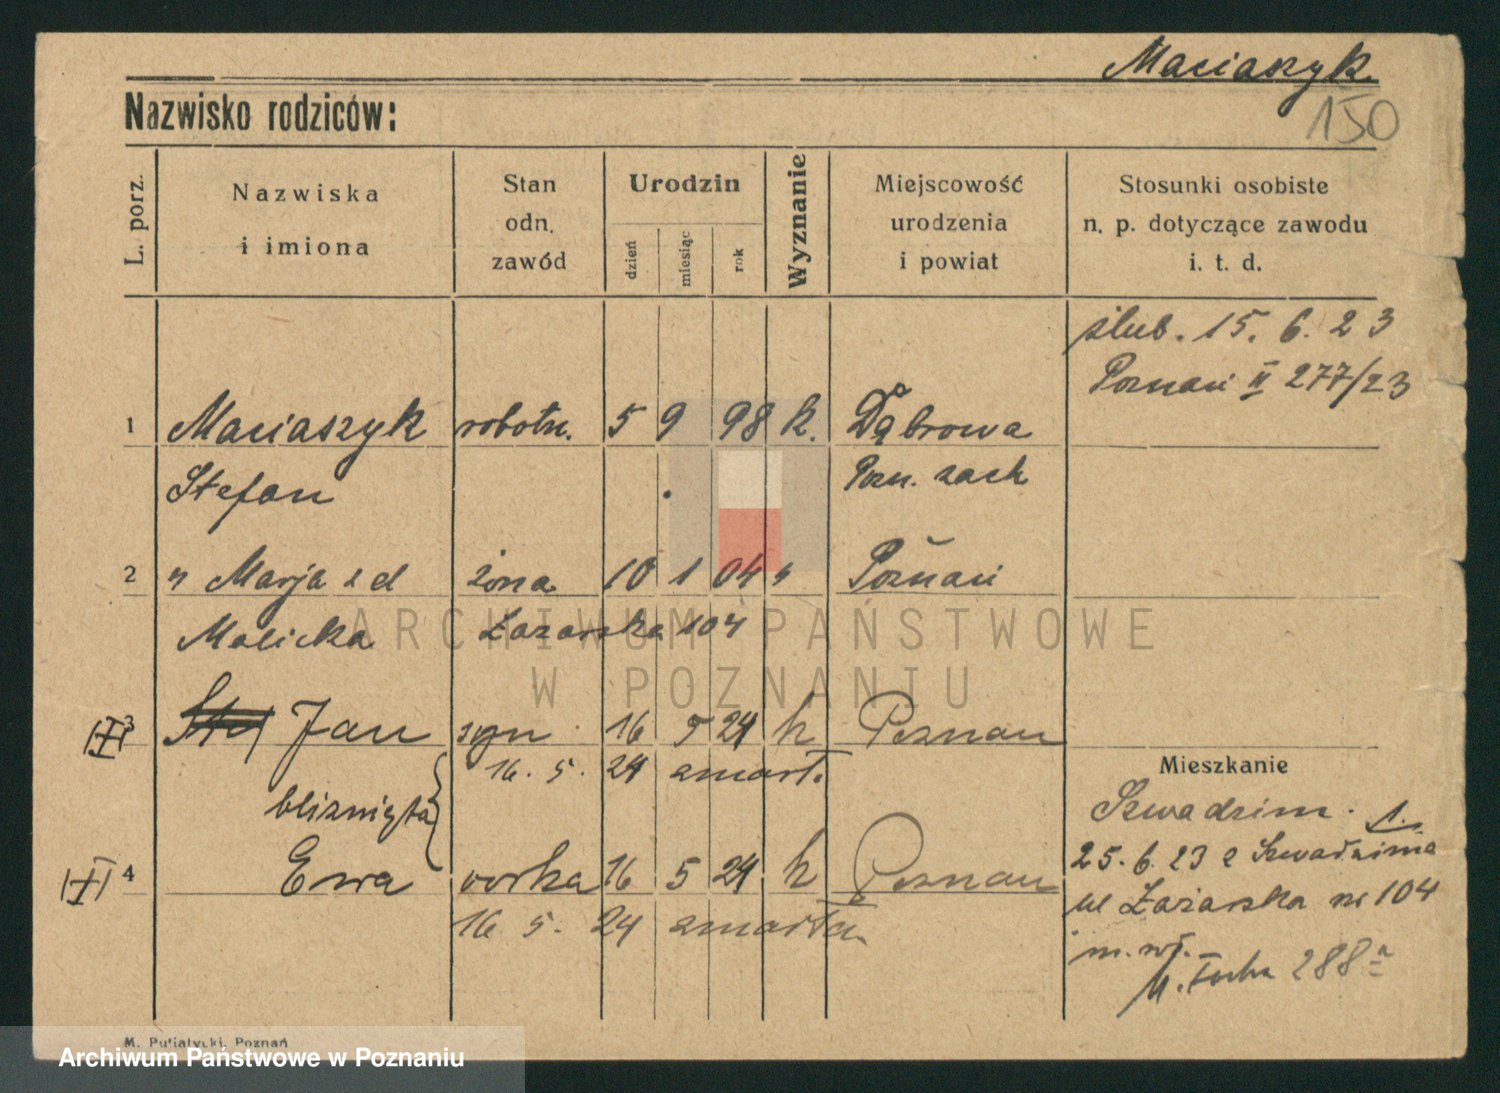 Maciaszyk
150
Nazwisko rodziców:
L. porz.
Nazwiska
i imiona
Stan
odn.
zawód
Urodzin
dzień
miesiąc
rok
Wyznanie
Miejscowość
urodzenia
i powiat
Stosunki osobiste
n. p. dotyczące zawodu
i. t. d.
ślub. 15. 6. 23
Poznań II 277/23
1 Maciaszyk robotn. 5 9 98 k. Dąbrowa
Stefan Pozn. zach
2 " Marja z d żona 10 1 04 " Poznań
Malicka Łazarska 104
ARCHIWUM PAŃSTWOWE
W POZNANIU
3 Jan syn 16 5 24 k Poznań
16. 5. 24 zmarł.
bliźnięta
4 Ewa córka 16 5 24 k Poznań
16 5. 24 zmarła.
Mieszkanie
Szwadzim. 1.
25. 6. 23 z Szwadzima
ul Łazarska nr 104
288a
M. Putiatycki, Poznań
Archiwum Państwowe w Poznaniu